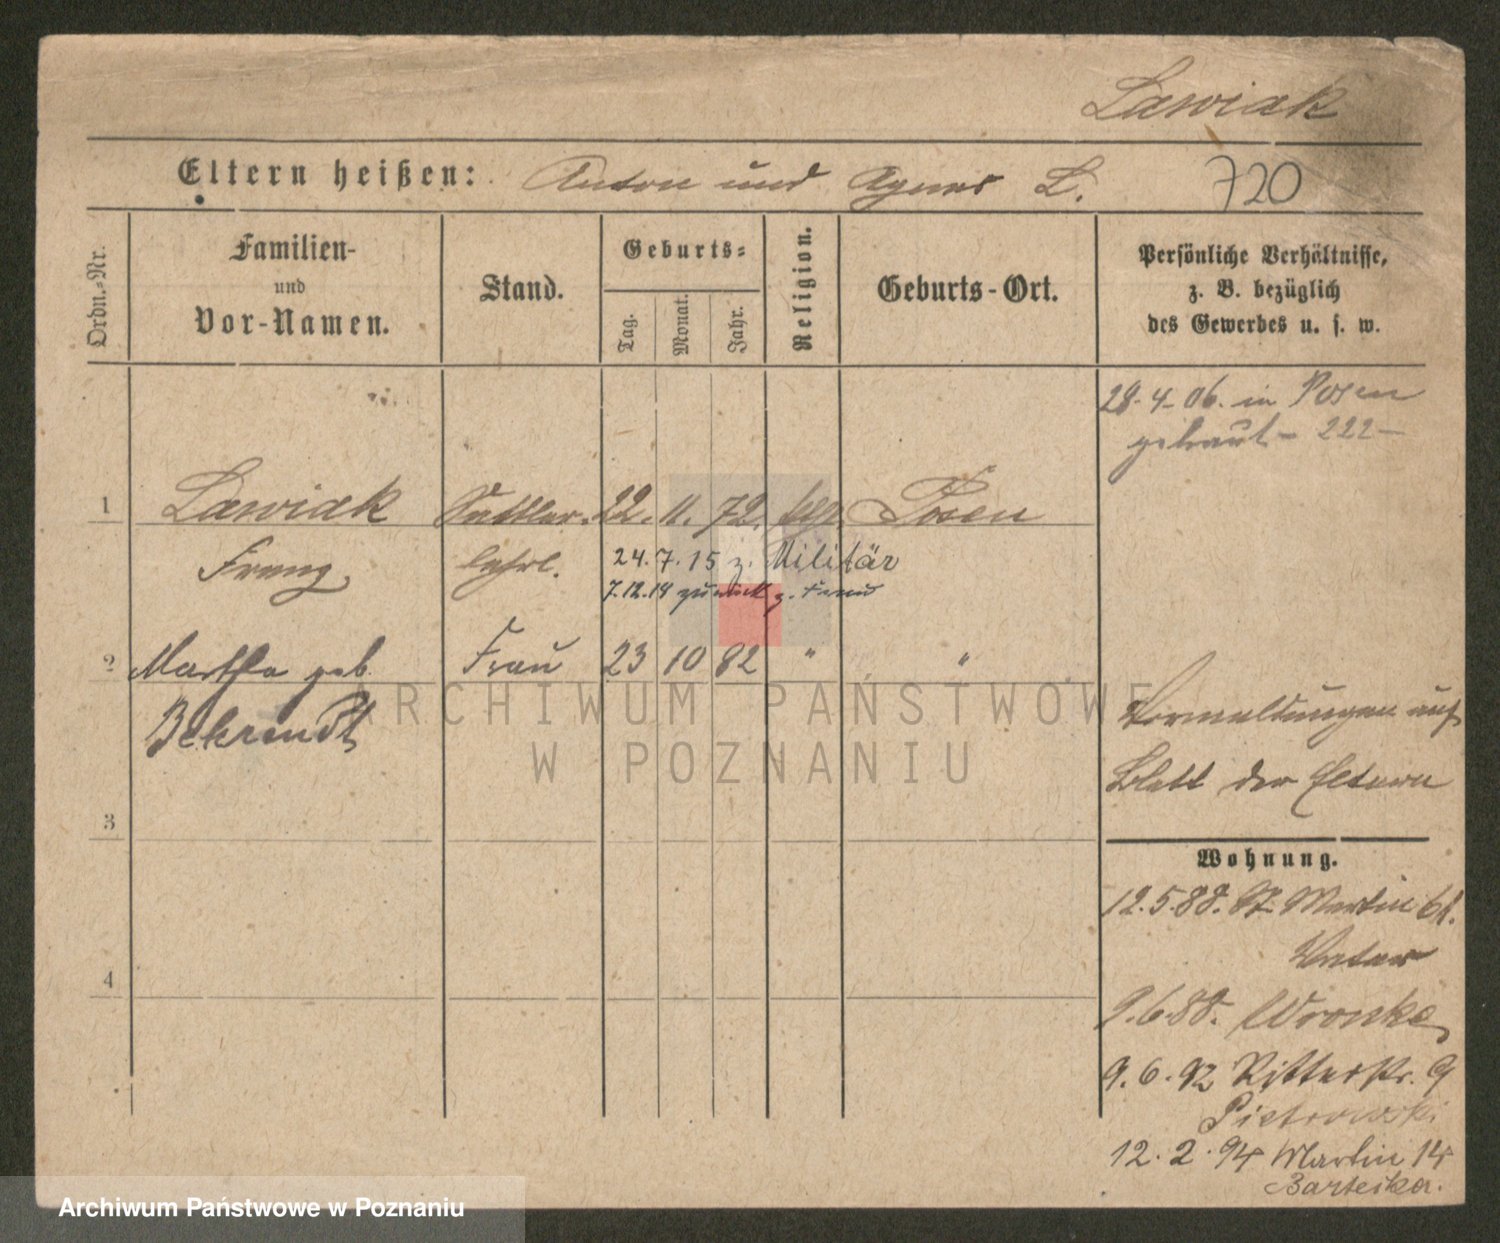 Lawiak
Eltern heißen: Anton und Agnes L. 720
Ordn.-Nr.
Familien-
und
Vor-Namen.
Stand.
Geburts-
Tag.
Monat.
Jahr.
Religion.
Geburts-Ort.
Persönliche Verhältnisse,
z. B. bezüglich
des Gewerbes u. s. w.
28.4.06. in Posen
getraut - 222 -
1 Lawiak Sattler- 22. 11. 72. Posen
Franz lehrl. 24.7.15 z. Militär
7.12.18 zurück z. Frau
2 Martha geb. Frau 23 10 82 " "
Behrendt
Vermeldungen auf
Blatt der Eltern
3
Wohnung.
12.5.88. St. Martin 61.
Vater
4
9.6.88. Wronke
9.6.92 Ritterstr. 9
Pietrowski
12.2.94 Martin 14
Barteska.
ARCHIWUM PAŃSTWOWE
W POZNANIU
Archiwum Państwowe w Poznaniu